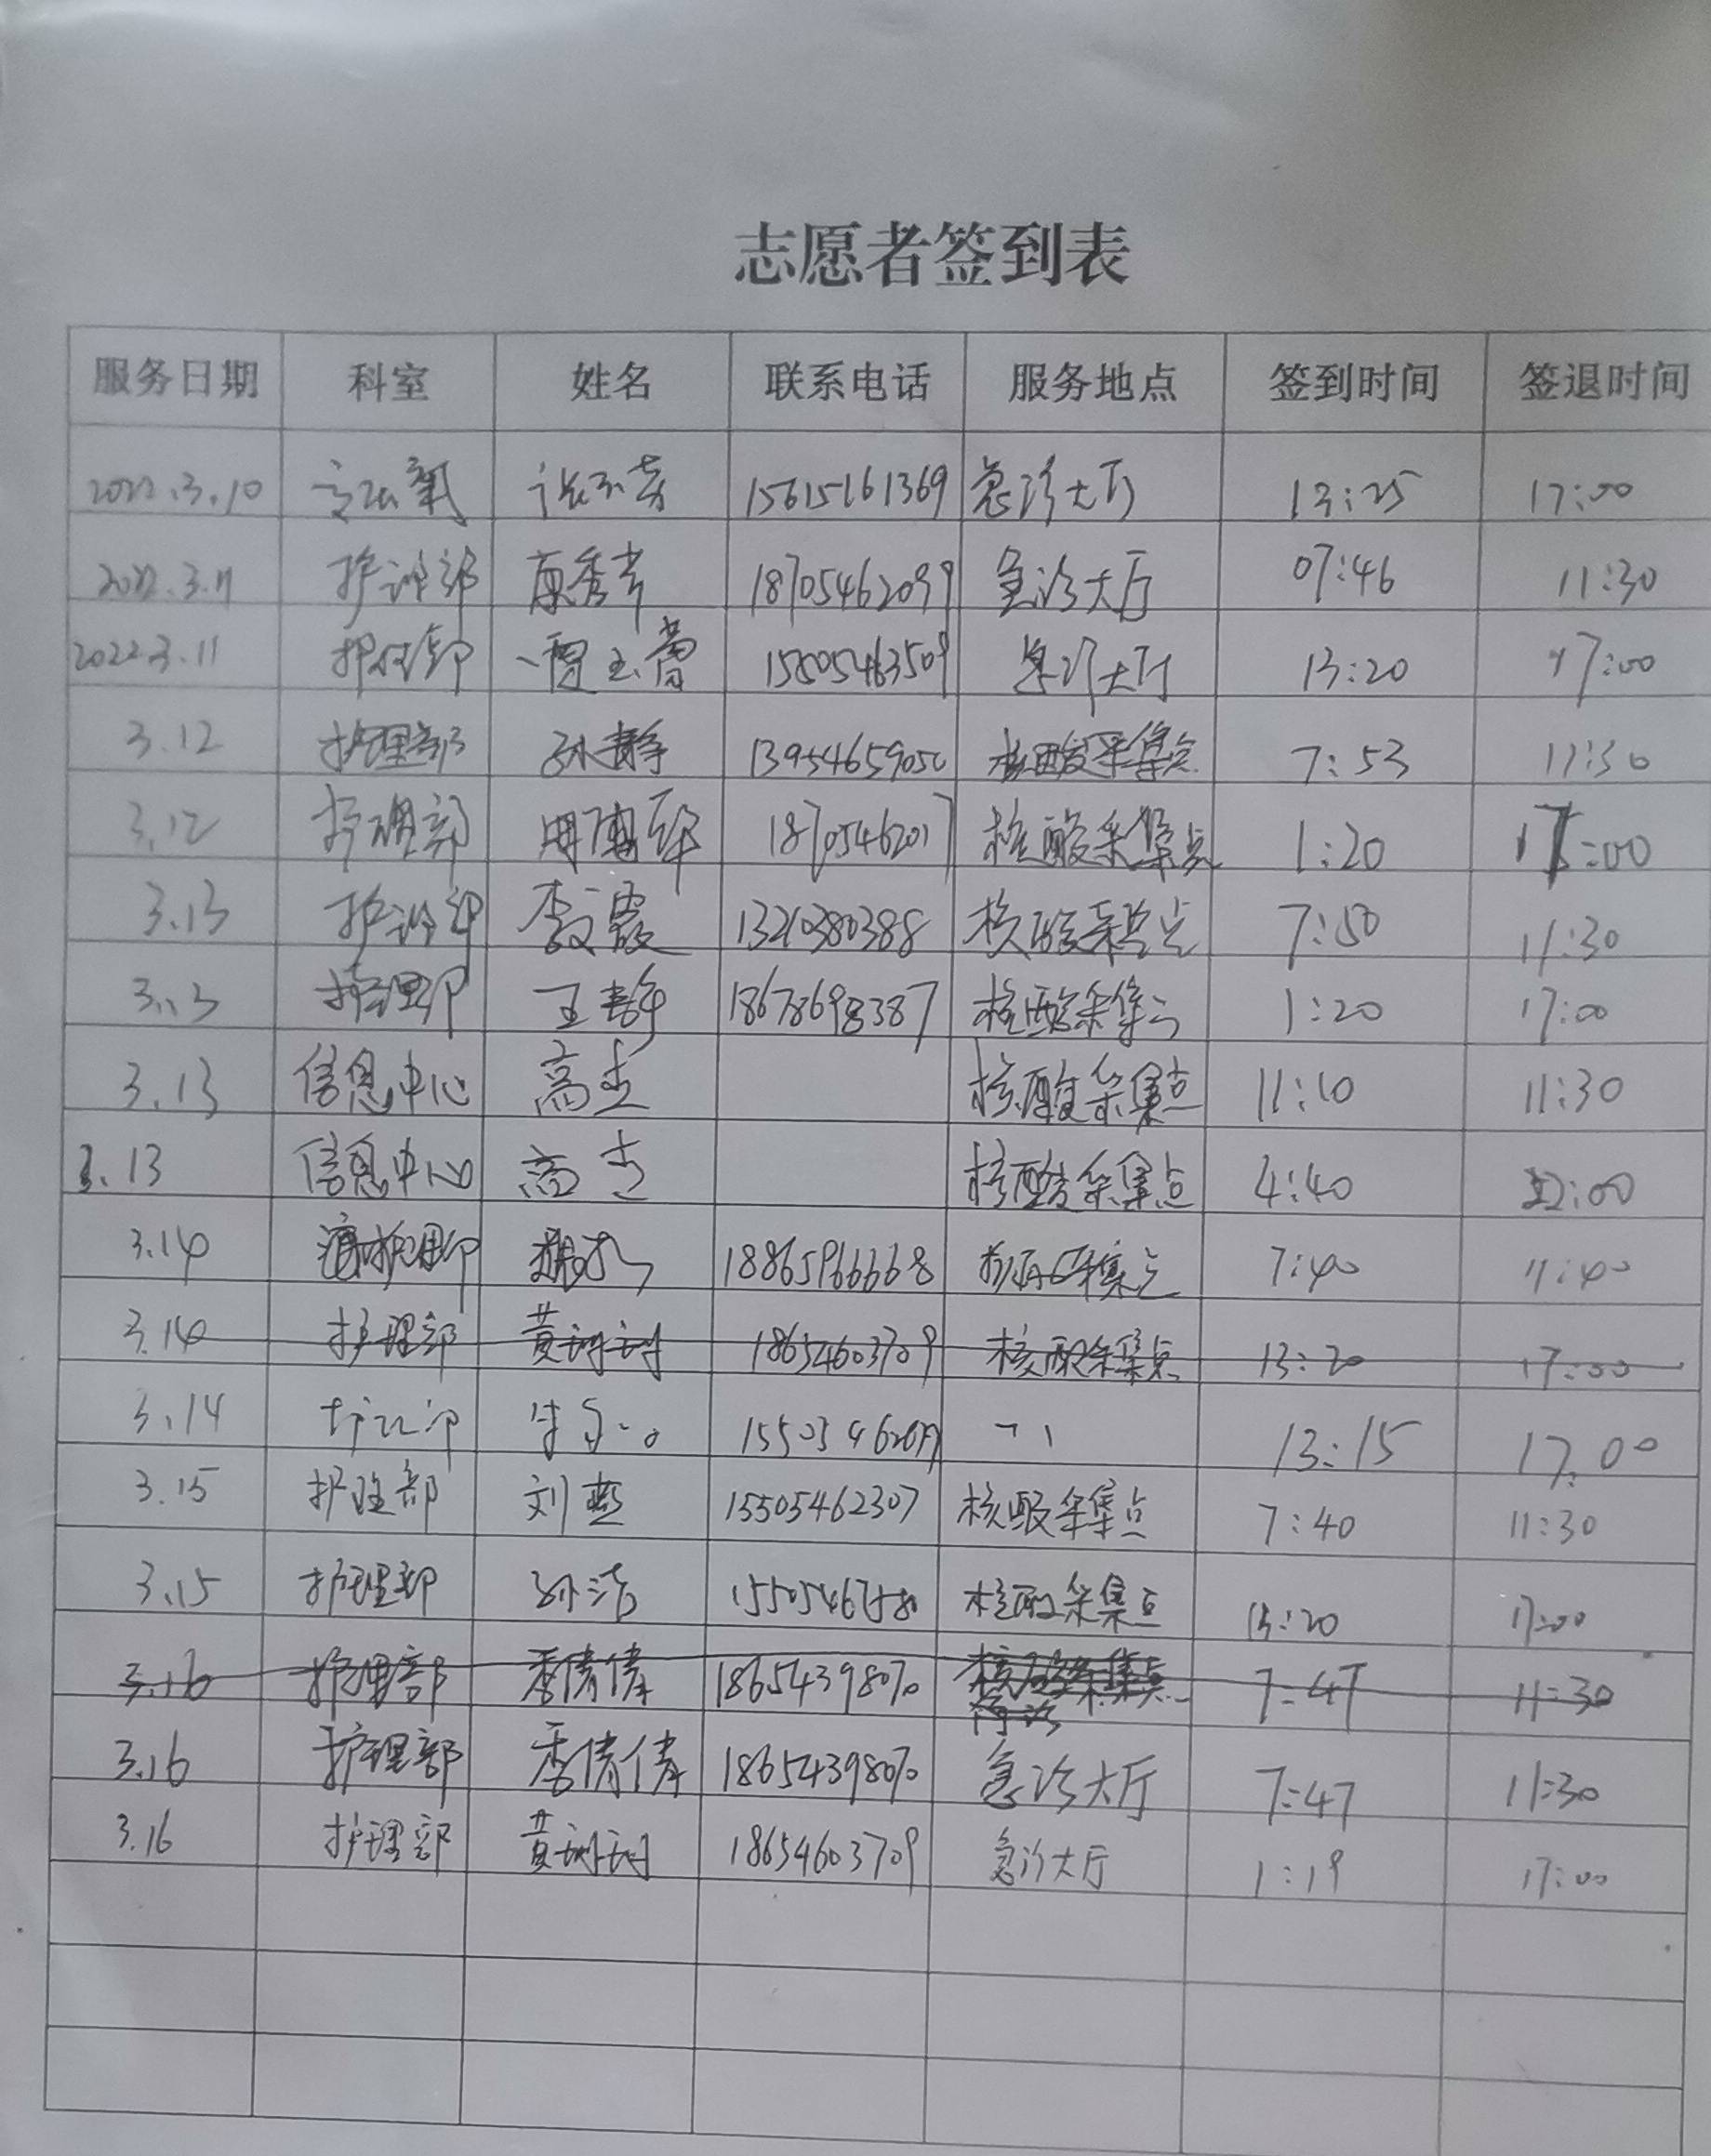 志愿者签到表
服务日期 科室 姓名 联系电话 服务地点 签到时间 签退时间
2022.3.10 15615161369 急诊大厅 13:25 17:00
2022.3.11 护理部 18705462099 急诊大厅 07:46 11:30
2022.3.11 护理部 贾玉蕾 15805463509 急诊大厅 13:20 17:00
3.12 护理部 孙静 13954659050 核酸采集点 7:53 11:30
3.12 护理部 18705462017 核酸采集点 1:20 17:00
3.13 护理部 李霞 13210380388 核酸采集点 7:50 11:30
3.13 护理部 王静 18678698387 核酸采集点 1:20 17:00
3.13 信息中心 高杰 核酸采集点 11:10 11:30
3.13 信息中心 高杰 核酸采集点 4:40 :00
3.14 护理部 18865966668 核酸采集点 7:40 11:40
3.14 护理部 黄珂珂 18654603709 核酸采集点 13:20 17:00
3.14 护理部 13:15 17:00
3.15 护理部 刘燕 15505462307 核酸采集点 7:40 11:30
3.15 护理部 孙洁 核酸采集点 13:20 17:00
3.16 护理部 季倩倩 18654398070 核酸采集点 7:47 11:30
3.16 护理部 季倩倩 18654398070 急诊大厅 7:47 11:30
3.16 护理部 黄珂珂 18654603709 急诊大厅 1:19 17:00